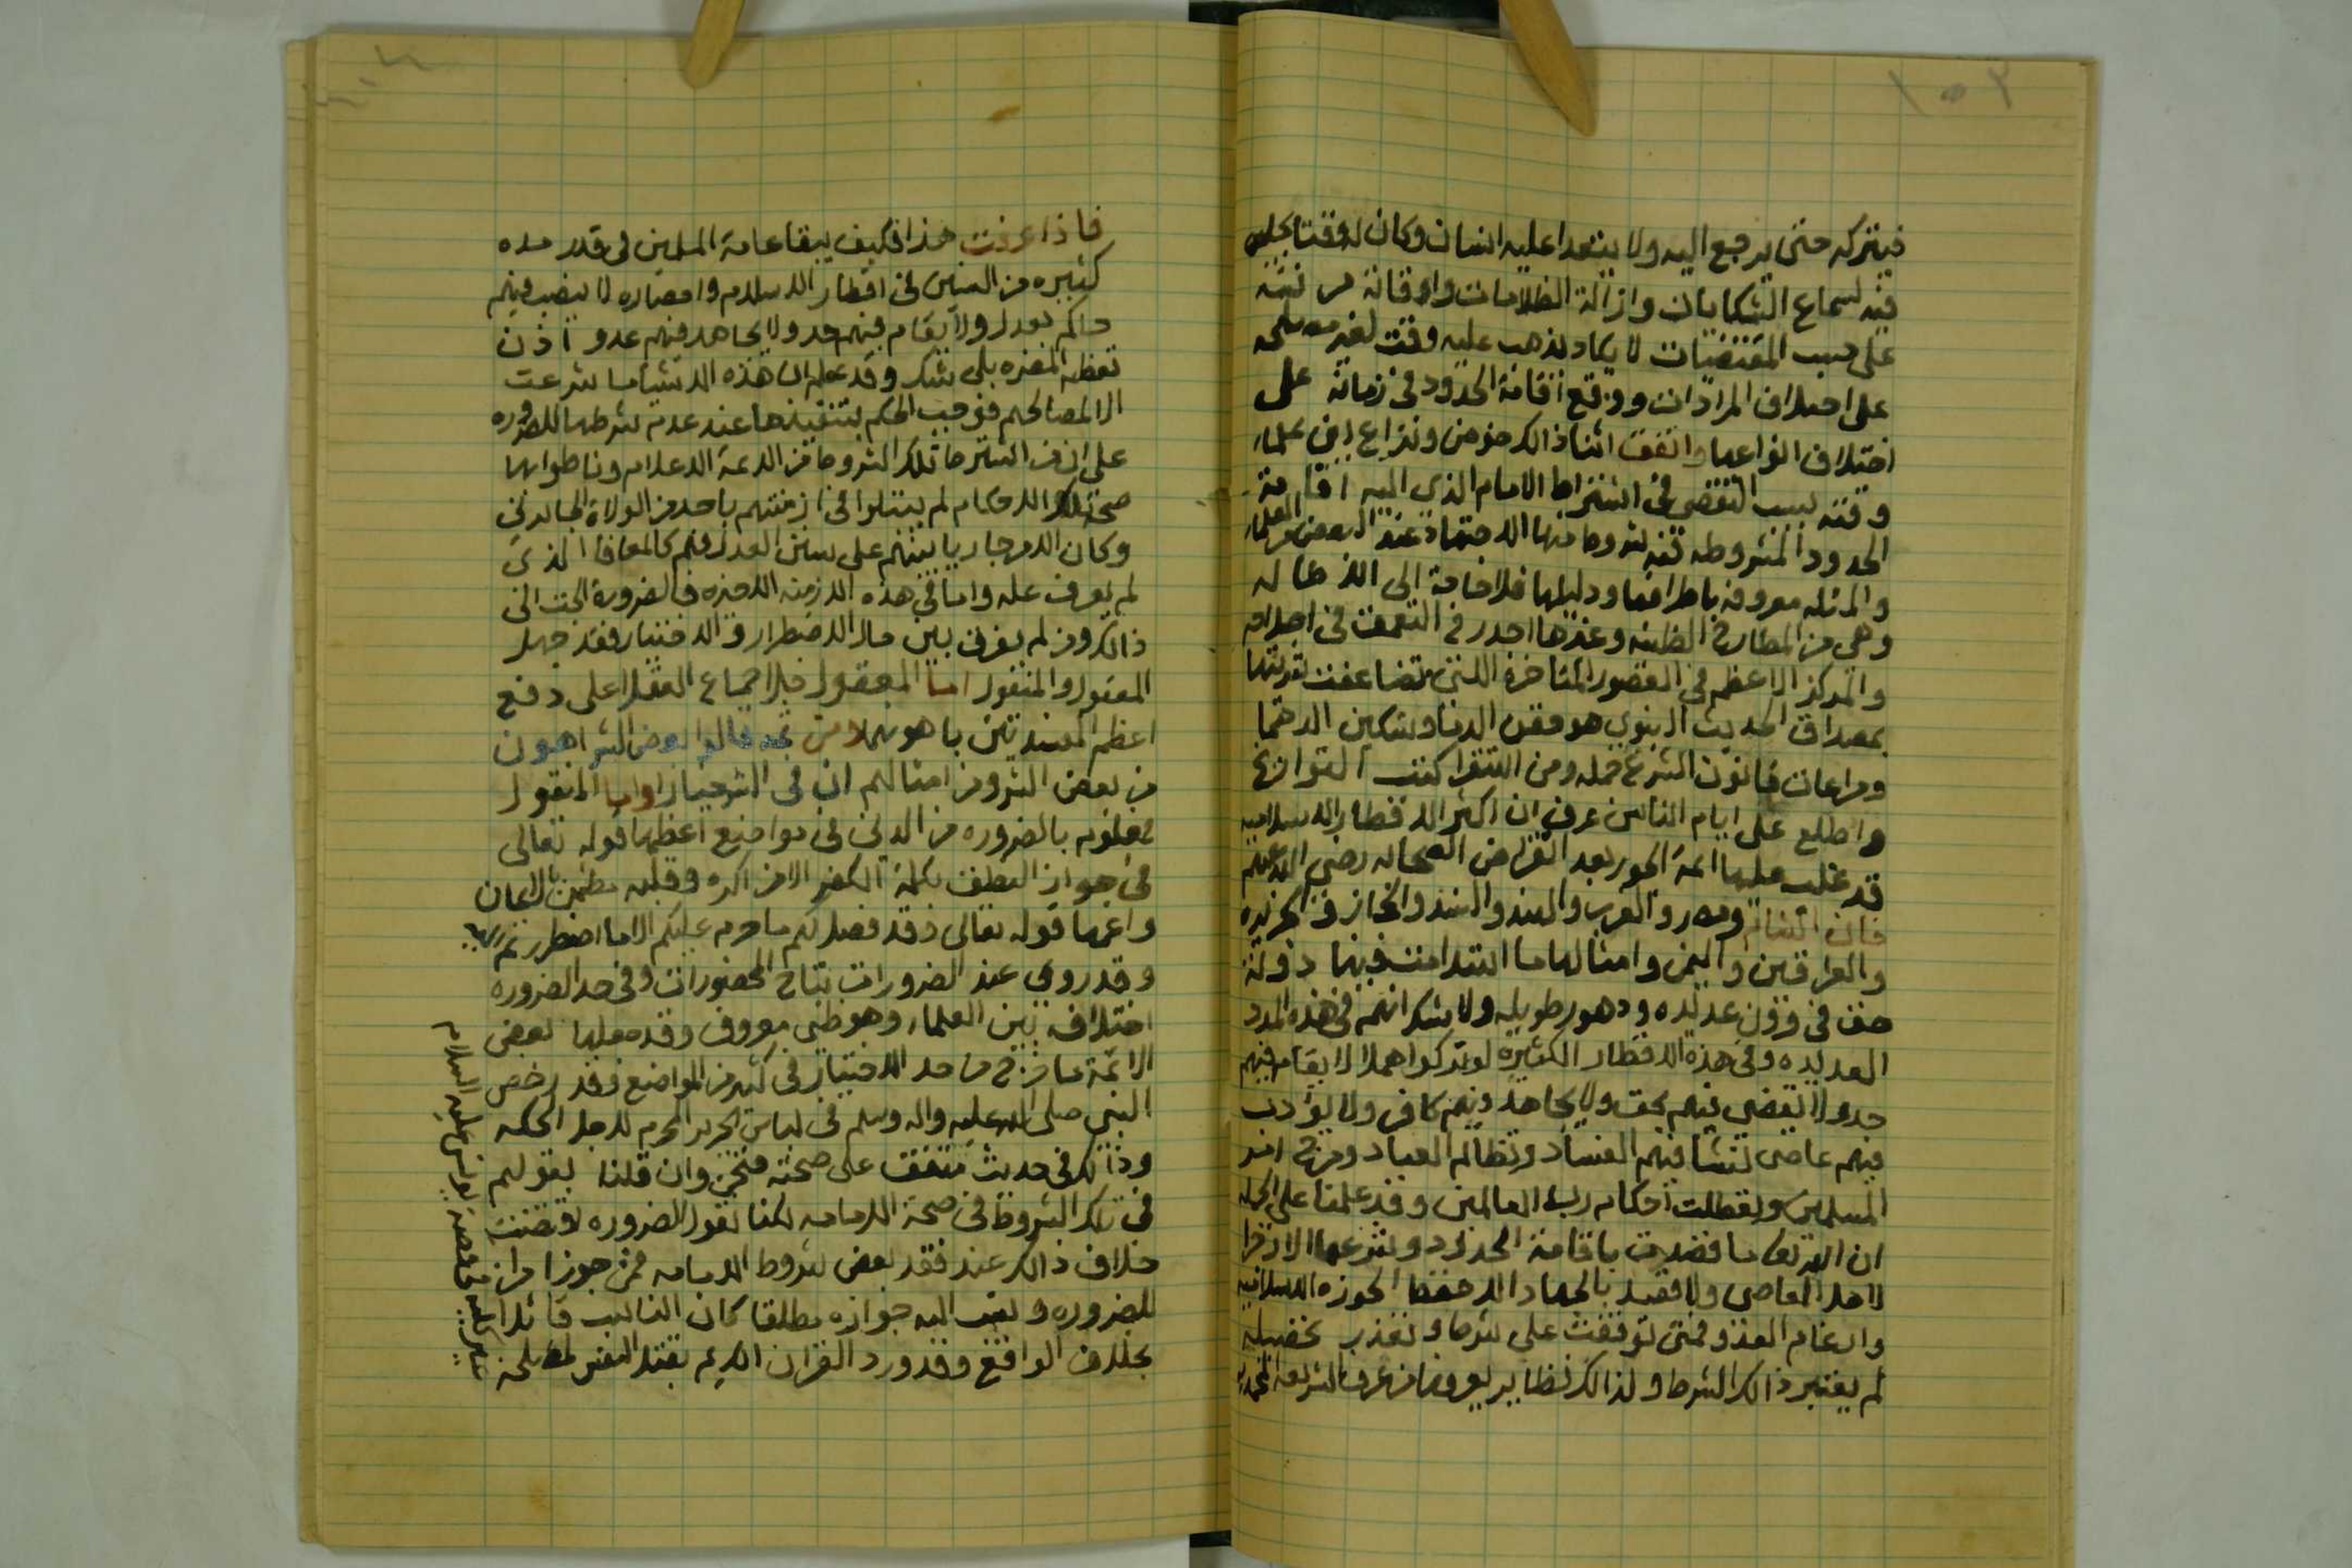 ١٥٢
فيتركه حتى يرجع اليه ولا يتعدا عليه انسان وكان له وقتا يجلس
فيه لسماع الشكايات وازالة الظلامات واوقاته مرتبه
على حسب المقتضيات لا يكاد يذهب عليه وقت لغير مصلحه
على اختلاف المرادات ووقع اقامة الحدود في زمانه على
اختلاف انواعها واتفق اثنا ذالك خوض ونزاع بين علماء
وقته بسبب التقصي في اشتراط الامام الذي اليه اقامة
الحدود المشروطه فيه شروط منها الاجتهاد عند البعض من العلماء
والمسئله معروفه باطرافها ودليلها فلا حاجة الى الاطاله
وهي من المطارح الظنيه وغيرها اجدر في التعمق في
والمركز الاعظم في العصور المتاخرة التي تضاعفت
بمصداق الحديث النبوي هو حقن الدما وتسكين الدهما
ومراعات قانون الشرع جمله ومن استقرا كتب التواريخ
واطلع على ايام الناس عرف ان اكثر الاقطار الاسلاميه
قد تغلب عليها ائمة الجور بعد انقراض الصحابه رضي الله عنهم
فان الشام ومصر والغرب والهند والسند والحجاز والجزيره
والعراقين واليمن وامثالها ما استدامت فيها دولة
حق في قرون عديده ودهور طويله ولا شك انهم في هذه المدد
العديده وفي هذه الاقطار الكثيرة لو تركوا هملا لا يقام فيهم
حد ولا يقضى فيهم بحق ولا يجاهد فيهم كافر ولا يؤدب
فيهم عاصي لنشا فيهم الفساد وتظالم العباد ومرج امر
المسلمين وتعطلت احكام رب العالمين وقد علمنا على الجمله
ان الله تعالى ما قصد باقامة الحدود وشرعها الا زجرا
لاهل المعاصي ولا قصد بالجهاد الا حفظ الحوزه الاسلاميه
وارغام العدو فمتى توقفت على شرط وتعذر تحصيله
لم يعتبر ذالك الشرط ولذالك نظاير يعرفها من عرف الشريعه المحمديه
فاذا عرفت هذا فكيف يبقا عامة المسلمين في قدر مده
كثيره من السنين في اقطار الاسلام وامصاره لا ينصب فيهم
حاكم بعدل ولا يقام فيهم حد ولا يجاهد فيهم عدو اذن
تعظم المضره بلى شك وقد علم ان هذه الاشيا ما شرعت
الا لمصالحهم فوجب الحكم بتنفيذها عند عدم شرطها للضروره
على ان من اشترط تلك الشروط من الائمة الاعلام وناطوا بها
صحة تلك الاحكام لم يبتلوا في ازمنتهم باحد من الولاة الجايرين
وكان الامر جاريا بينهم على سنن العدل فهم كالمعافا الذي
لم يعرف علم واما في هذه الازمنه الاخيره فالضرورة الجت الى
ذالك ومن لم يفرق بين حال الاضطرار والاختيار فقد جهل
المعقول والمنقول اما المعقول فلاجماع العقلا على دفع
اعظم المفسدتين باهونهما ومن ثمه قالوا بعض الشر اهون
من بعض الشر ومن امثالهم ان في الشر خيارا واما المنقول
فمعلومه بالضروره من الدين في مواضع اعظمها قوله تعالى
في جواز النطق بكلمة الكفر الا من اكره وقلبه مطمئن بالايمان
واعمها قوله تعالى وقد فصل لكم ما حرم عليكم الا ما اضطررتم اليه
وقد روي عند الضرورات تباح المحضورات وفي حد الضروره
اختلاف بين العلماء وهو ظني معروف وقد جعلها بعض
الائمة ما خرج من حد الاختيار في كثير من المواضع وقد رخص
النبي صلى الله عليه واله وسلم في لباس الحرير المحرم لاجل الحكه
وذالك في حديث متفق على صحته فنحن وان قلنا بقولهم
في تلك الشروط في صحة الامامه لكنا نقول الضروره اقتضت
خلاف ذالك عند فقد بعض شروط الامامه فمن جوز امرا
للضروره ونسب اليه جوازه مطلقا كان الناسب قائلا
بخلاف الواقع وقد ورد القران الكريم بقتل النفس لمصلحة
قصة يونس عليه السلام